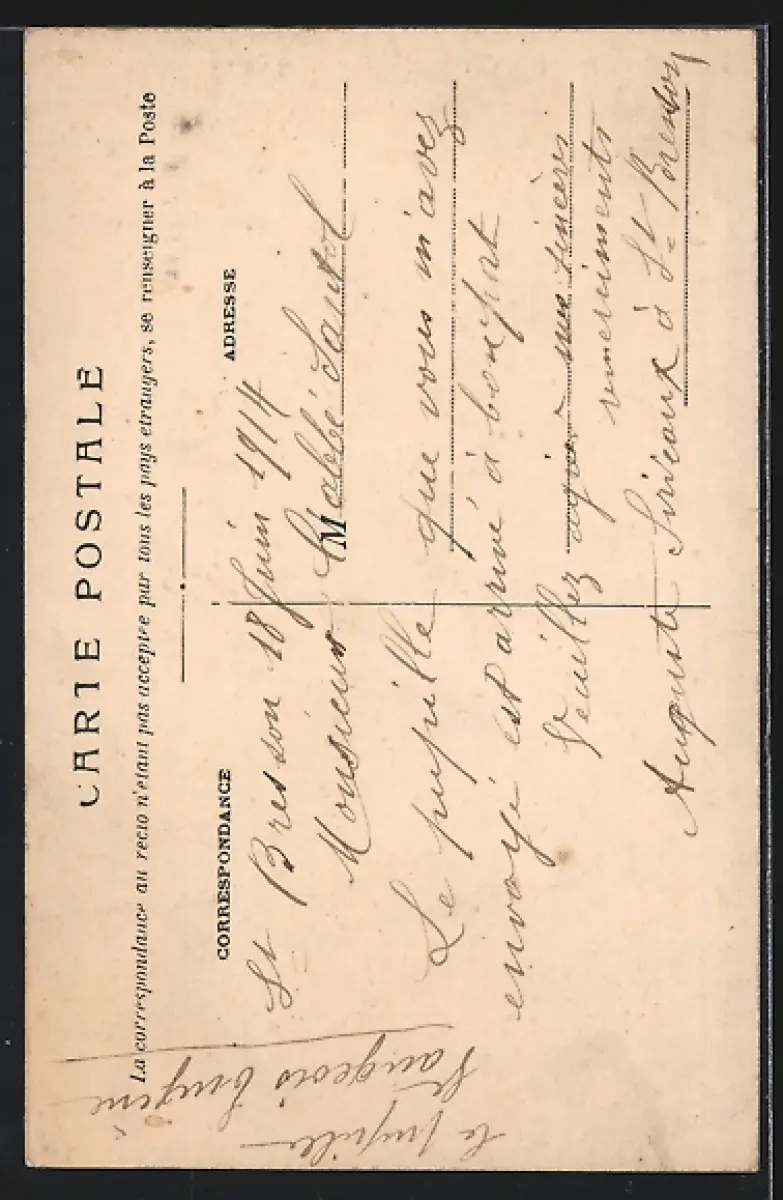 CARTE POSTALE
La correspondance au recto n'étant pas acceptée par tous les pays étrangers, se renseigner à la Poste
CORRESPONDANCE
ADRESSE
St Bresson 18 Juin 1914
Monsieur l'abbé
M
Le pupille que vous m'avez
envoyé est arrivé à bon port
Veuillez mes sincères
remerciements
Auguste à St Bresson
le pupille
Eugène